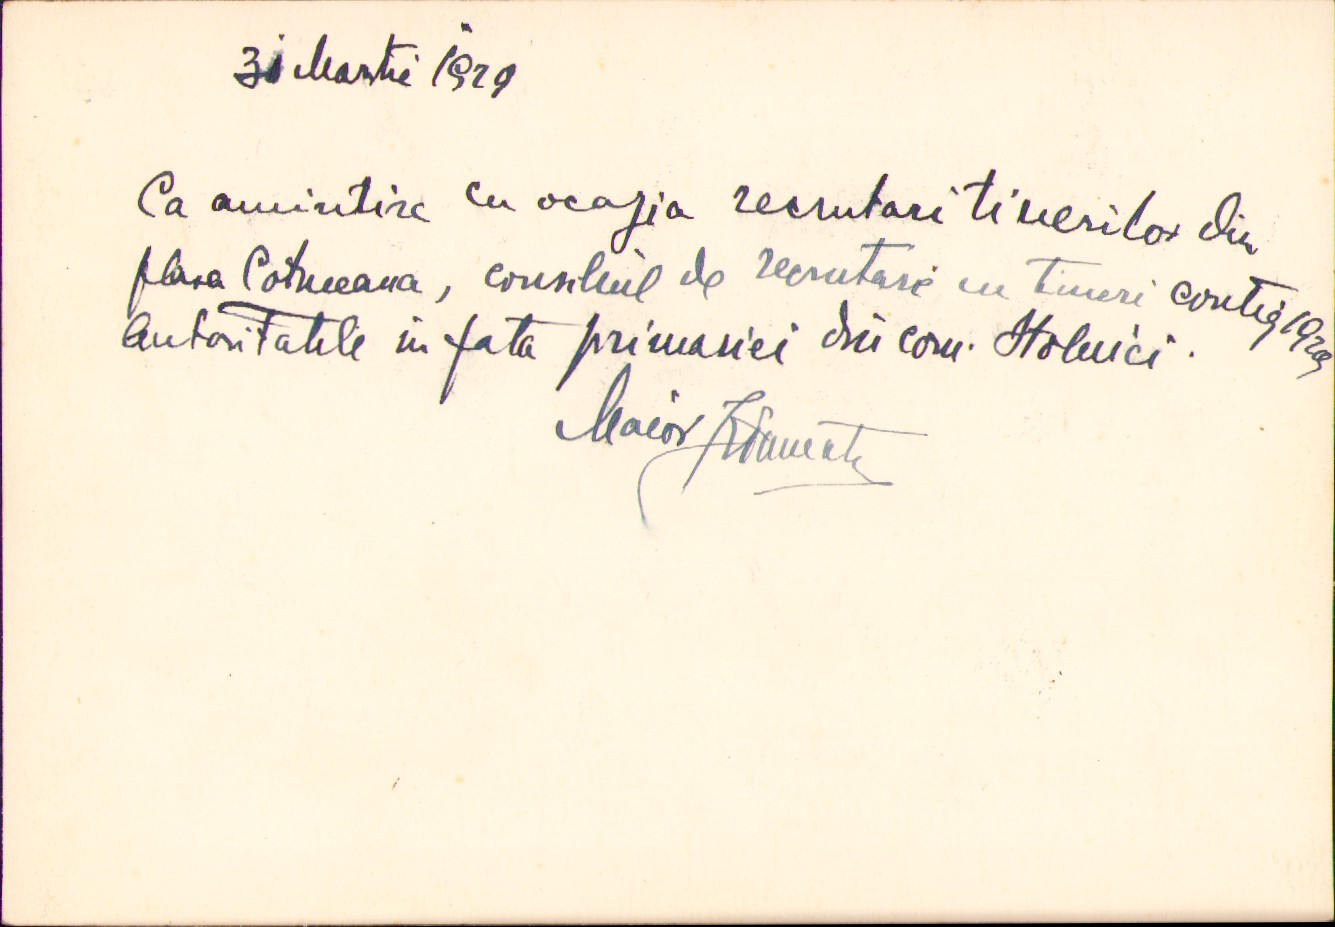 31 Martie 1929
Ca amintire cu ocazia recrutari tinerilor din
plasa Cotmeana, consiliul de recrutare cu tineri contig 1929
autoritatile in fata primariei din com. Stolnici.
Maior